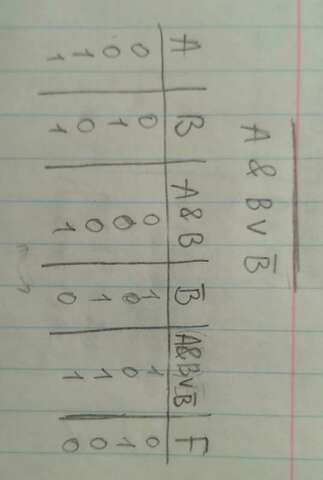 A & B ∨ B̅
A | B | A&B | B̅ | A&B∨B̅ | F
0 | 0 | 0 | 1 | 1 | 0
0 | 1 | 0 | 0 | 0 | 1
1 | 0 | 0 | 1 | 1 | 0
1 | 1 | 1 | 0 | 1 | 0